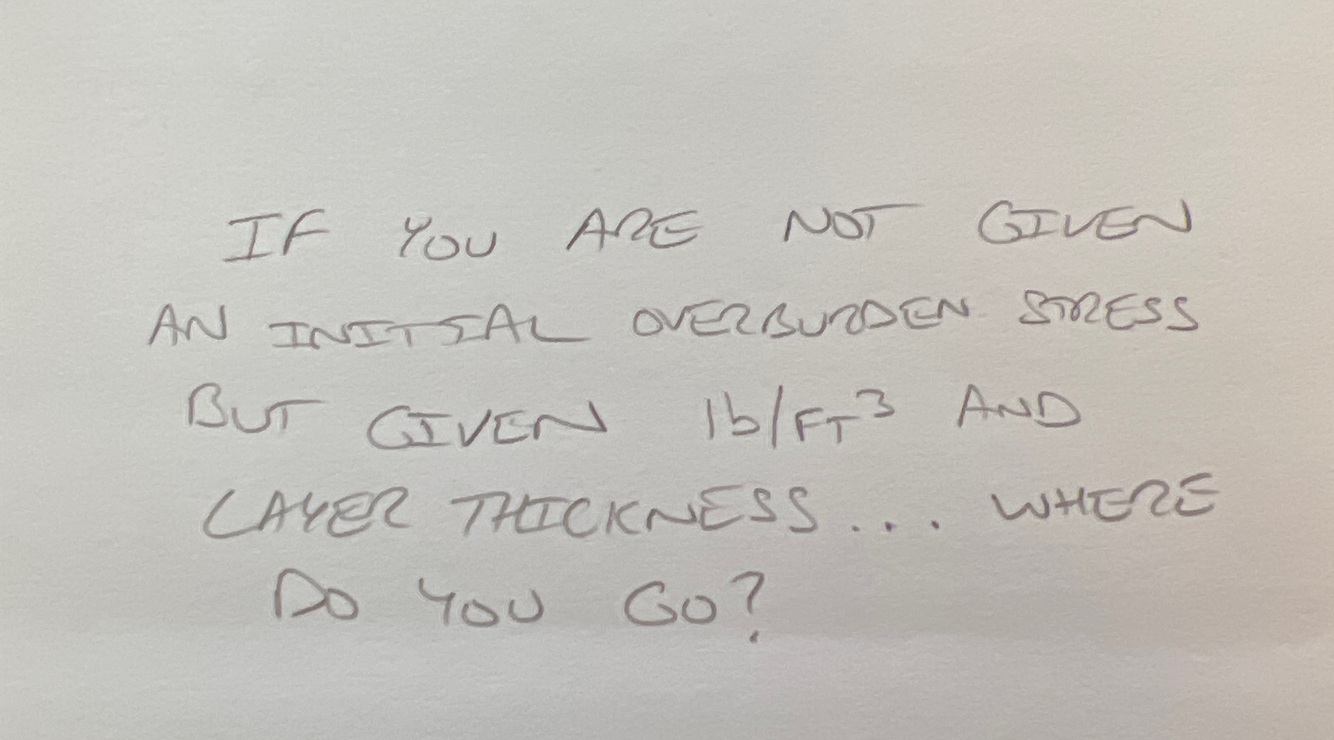 IF YOU ARE NOT GIVEN
AN INITIAL OVERBURDEN STRESS
BUT GIVEN lb/FT³ AND
LAYER THICKNESS... WHERE
DO YOU GO?